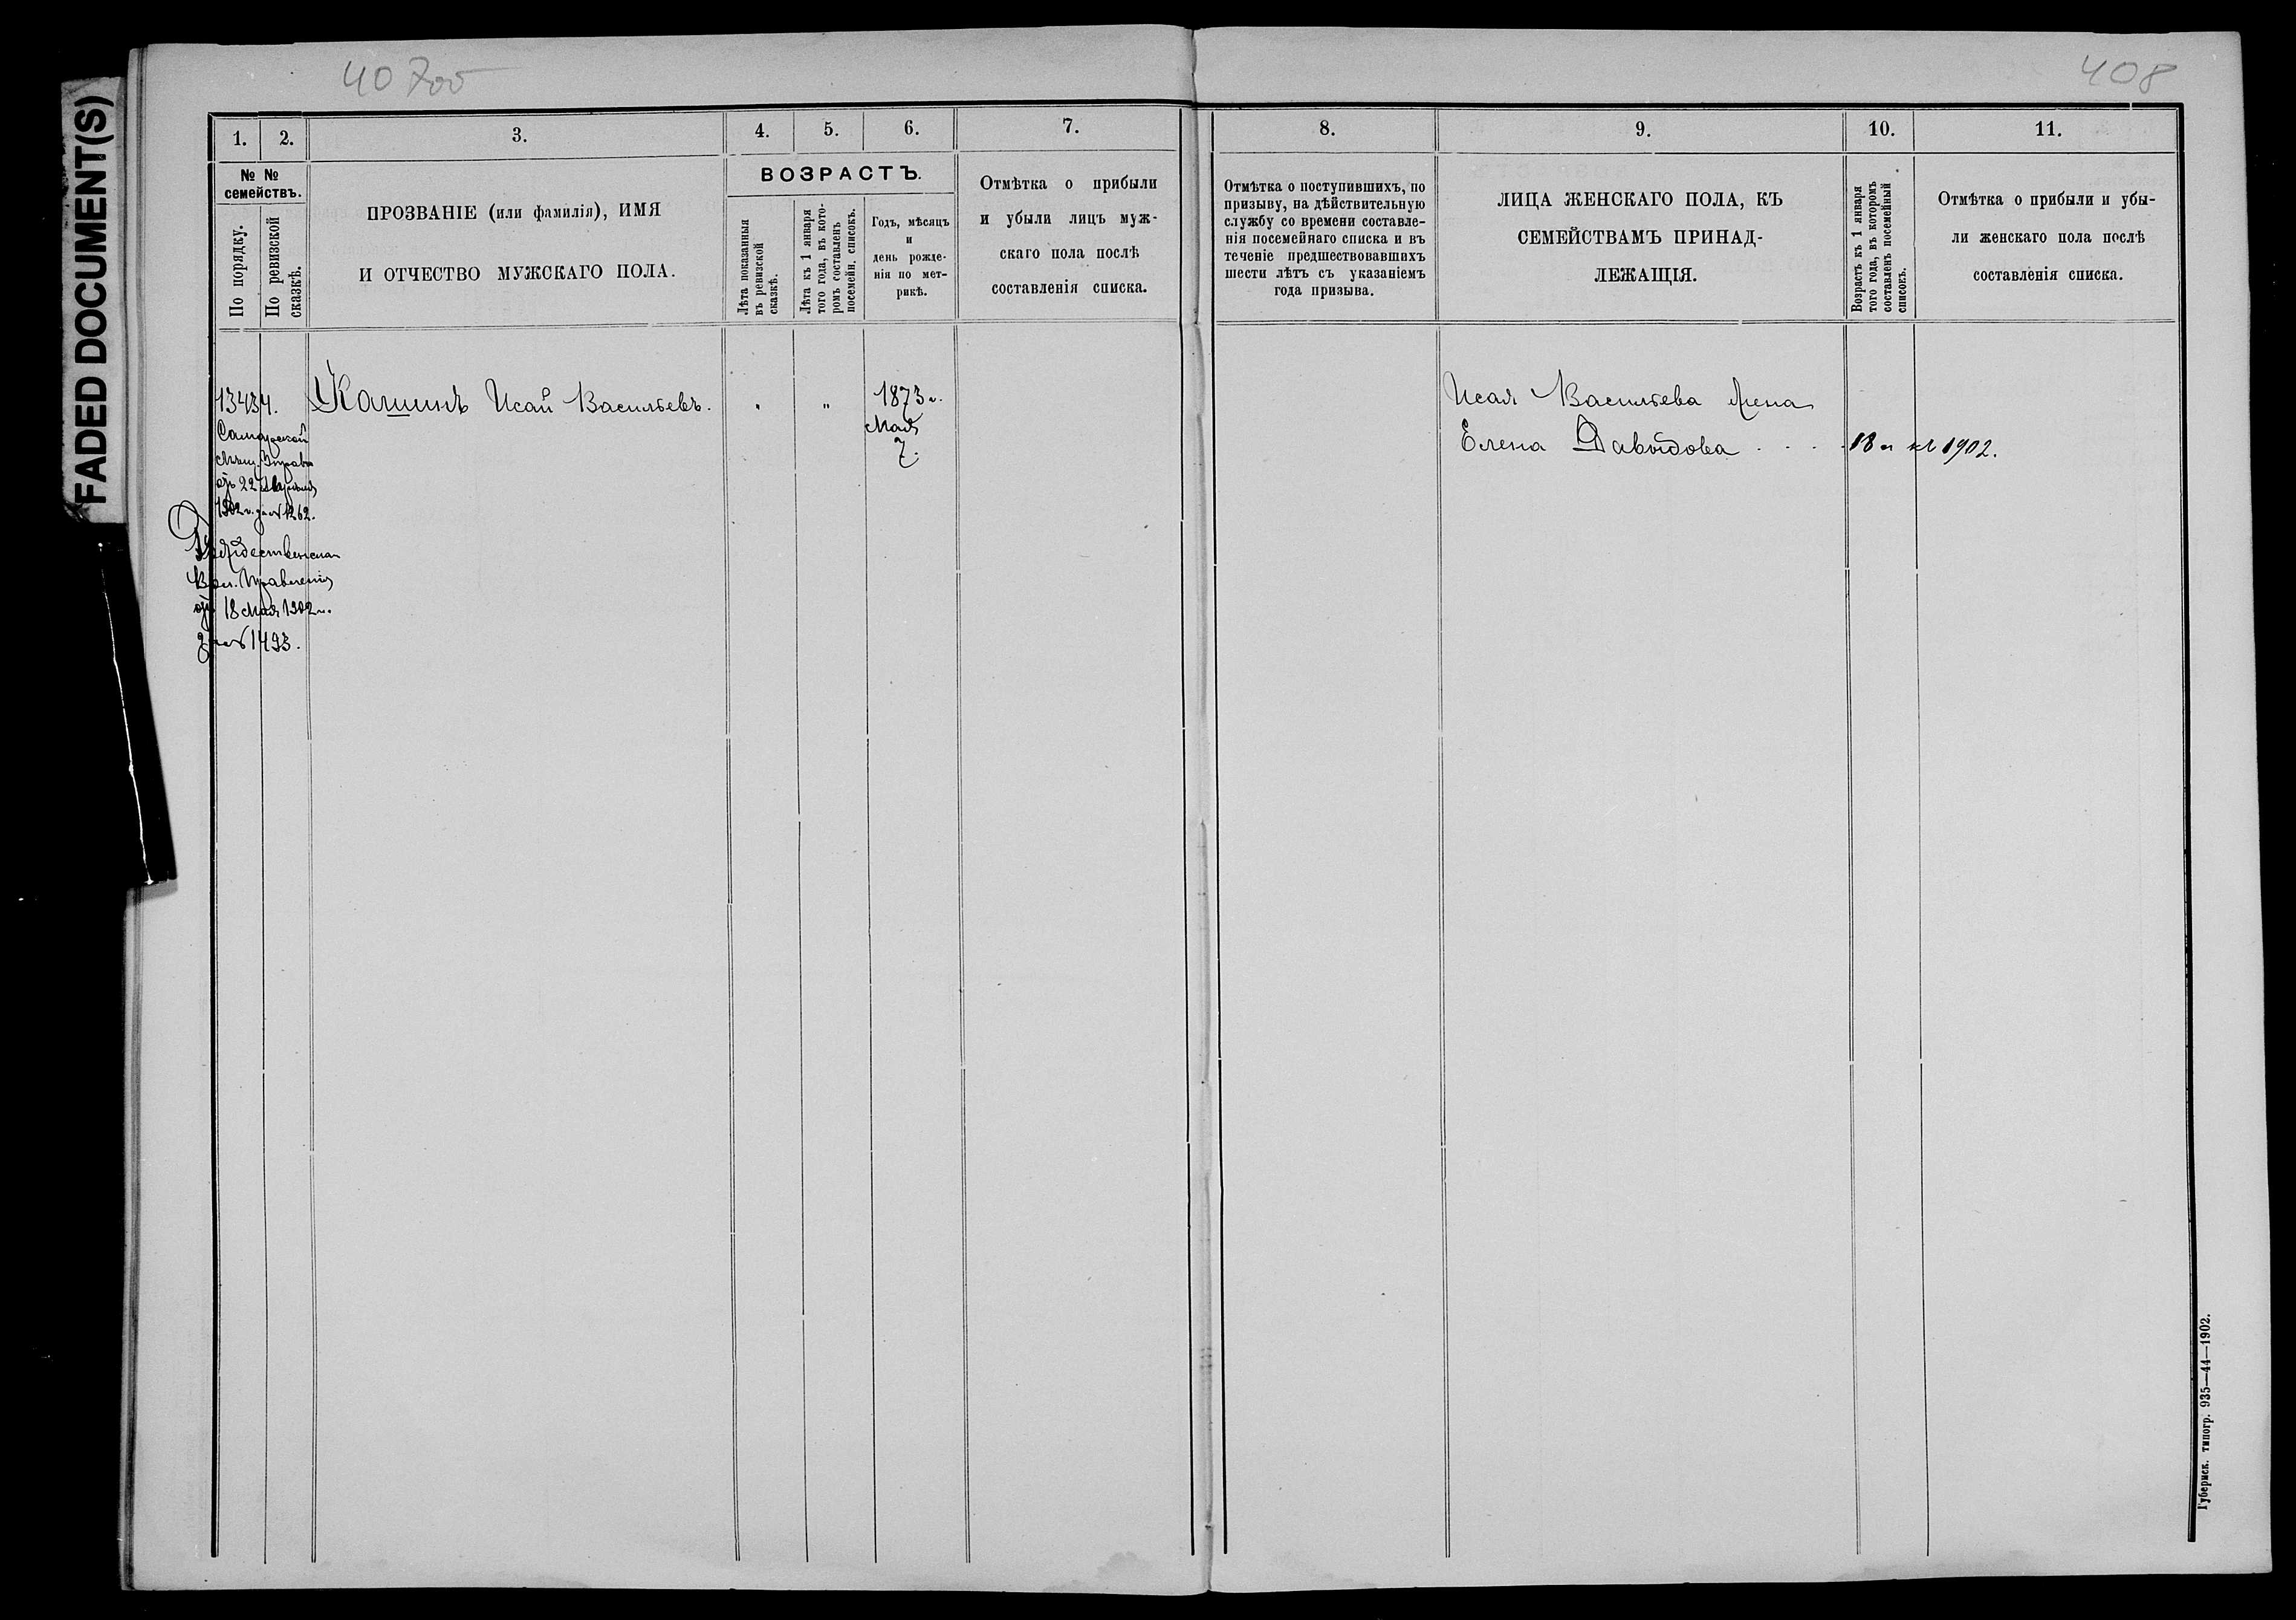 FADED DOCUMENT(S)
407об
408
1.
2.
3.
4.
5.
6.
7.
№ №
семействъ.
По порядку.
По ревизской
сказкѣ.
ПРОЗВАНІЕ (или фамилія), ИМЯ
И ОТЧЕСТВО МУЖСКАГО ПОЛА.
ВОЗРАСТЪ.
Лѣта показанныя
въ ревизской
сказкѣ.
Лѣта къ 1 января
того года, въ кото-
ромъ составленъ
посемейн. списокъ.
Годъ, мѣсяцъ
и
день рожде-
нія по мет-
рикѣ.
Отмѣтка о прибыли
и убыли лицъ муж-
скаго пола послѣ
составленія списка.
13434.
Самарской
Мѣщ. Управы
отъ 22 Апрѣля
1902 г. за № 1262.
Вол. Правленія
отъ 18 Мая 1902 г.
за № 1493.
Кашинъ Исай Васильевъ.
"
"
1873 г.
Мая
7.
8.
9.
10.
11.
Отмѣтка о поступившихъ, по
призыву, на дѣйствительную
службу со времени составле-
нія посемейнаго списка и въ
теченіе предшествовавшихъ
шести лѣтъ съ указаніемъ
года призыва.
ЛИЦА ЖЕНСКАГО ПОЛА, КЪ
СЕМЕЙСТВАМЪ ПРИНАД-
ЛЕЖАЩІЯ.
Возрастъ къ 1 января
того года, въ которомъ
составленъ посемейный
списокъ.
Отмѣтка о прибыли и убы-
ли женскаго пола послѣ
составленія списка.
Исая Васильева жена
Елена Давыдова . . . . 18 л 1902.
Губернск. типогр. 935—44—1902.